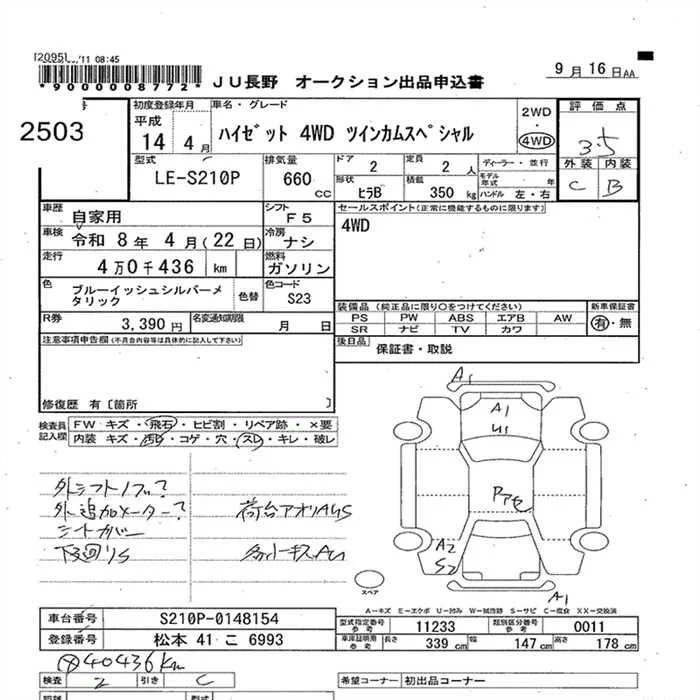 [2095] '11 08:45
*9000008772*
JU長野 オークション出品申込書
9月16日AA
2503
初度登録年月
平成
14 4月
車名・グレード
ハイゼット 4WD ツインカムスペシャル
2WD
・
4WD
評価点
3.5
外装 内装
C B
型式
LE-S210P
排気量
660 CC
ドア
2
定員
2 人
形状
ヒラB
積載
350 kg
ディーラー・並行
モデル年式 年
ハンドル 左・右
車歴
自家用
シフト
F5
車検
令和 8年 4月(22日)
冷房
ナシ
走行
4万0千436 km
燃料
ガソリン
色
ブルーイッシュシルバーメタリック
色替
色コード
S23
R券
3,390円
名変通知期限
月 日
セールスポイント(正常に機能するものに限ります)
4WD
装備品(純正品に限り○をつけてください)
PS PW ABS エアB AW
SR ナビ TV カワ
新車保証書
有・無
後日品
保証書・取説
注意事項申告欄(不具合内容等は具体的に記入して下さい)
修復歴 有〔箇所 〕
検査員記入欄
FW キズ・飛石・ヒビ割・リペア跡・×要
内装 キズ・汚れ・コゲ・穴・スレ・キレ・破レ
外シフトノブ?
外追加メーター?
シートカバー
下廻りS
荷台アオリAUS
A1
A1
U1
Pアセ
A2
S2
A1
スペア
A-キズ E-エクボ U-凹み W-補修跡 S-サビ C-腐食 XX-交換済
車台番号
S210P-0148154
登録番号
松本 41 こ 6993
型式指定番号
参考
11233
類別区分番号
参考
0011
車庫証明用
参考
長さ 339 cm
幅 147 cm
高さ 178 cm
40436km
検査 2 引き C
希望コーナー 初出品コーナー
型式